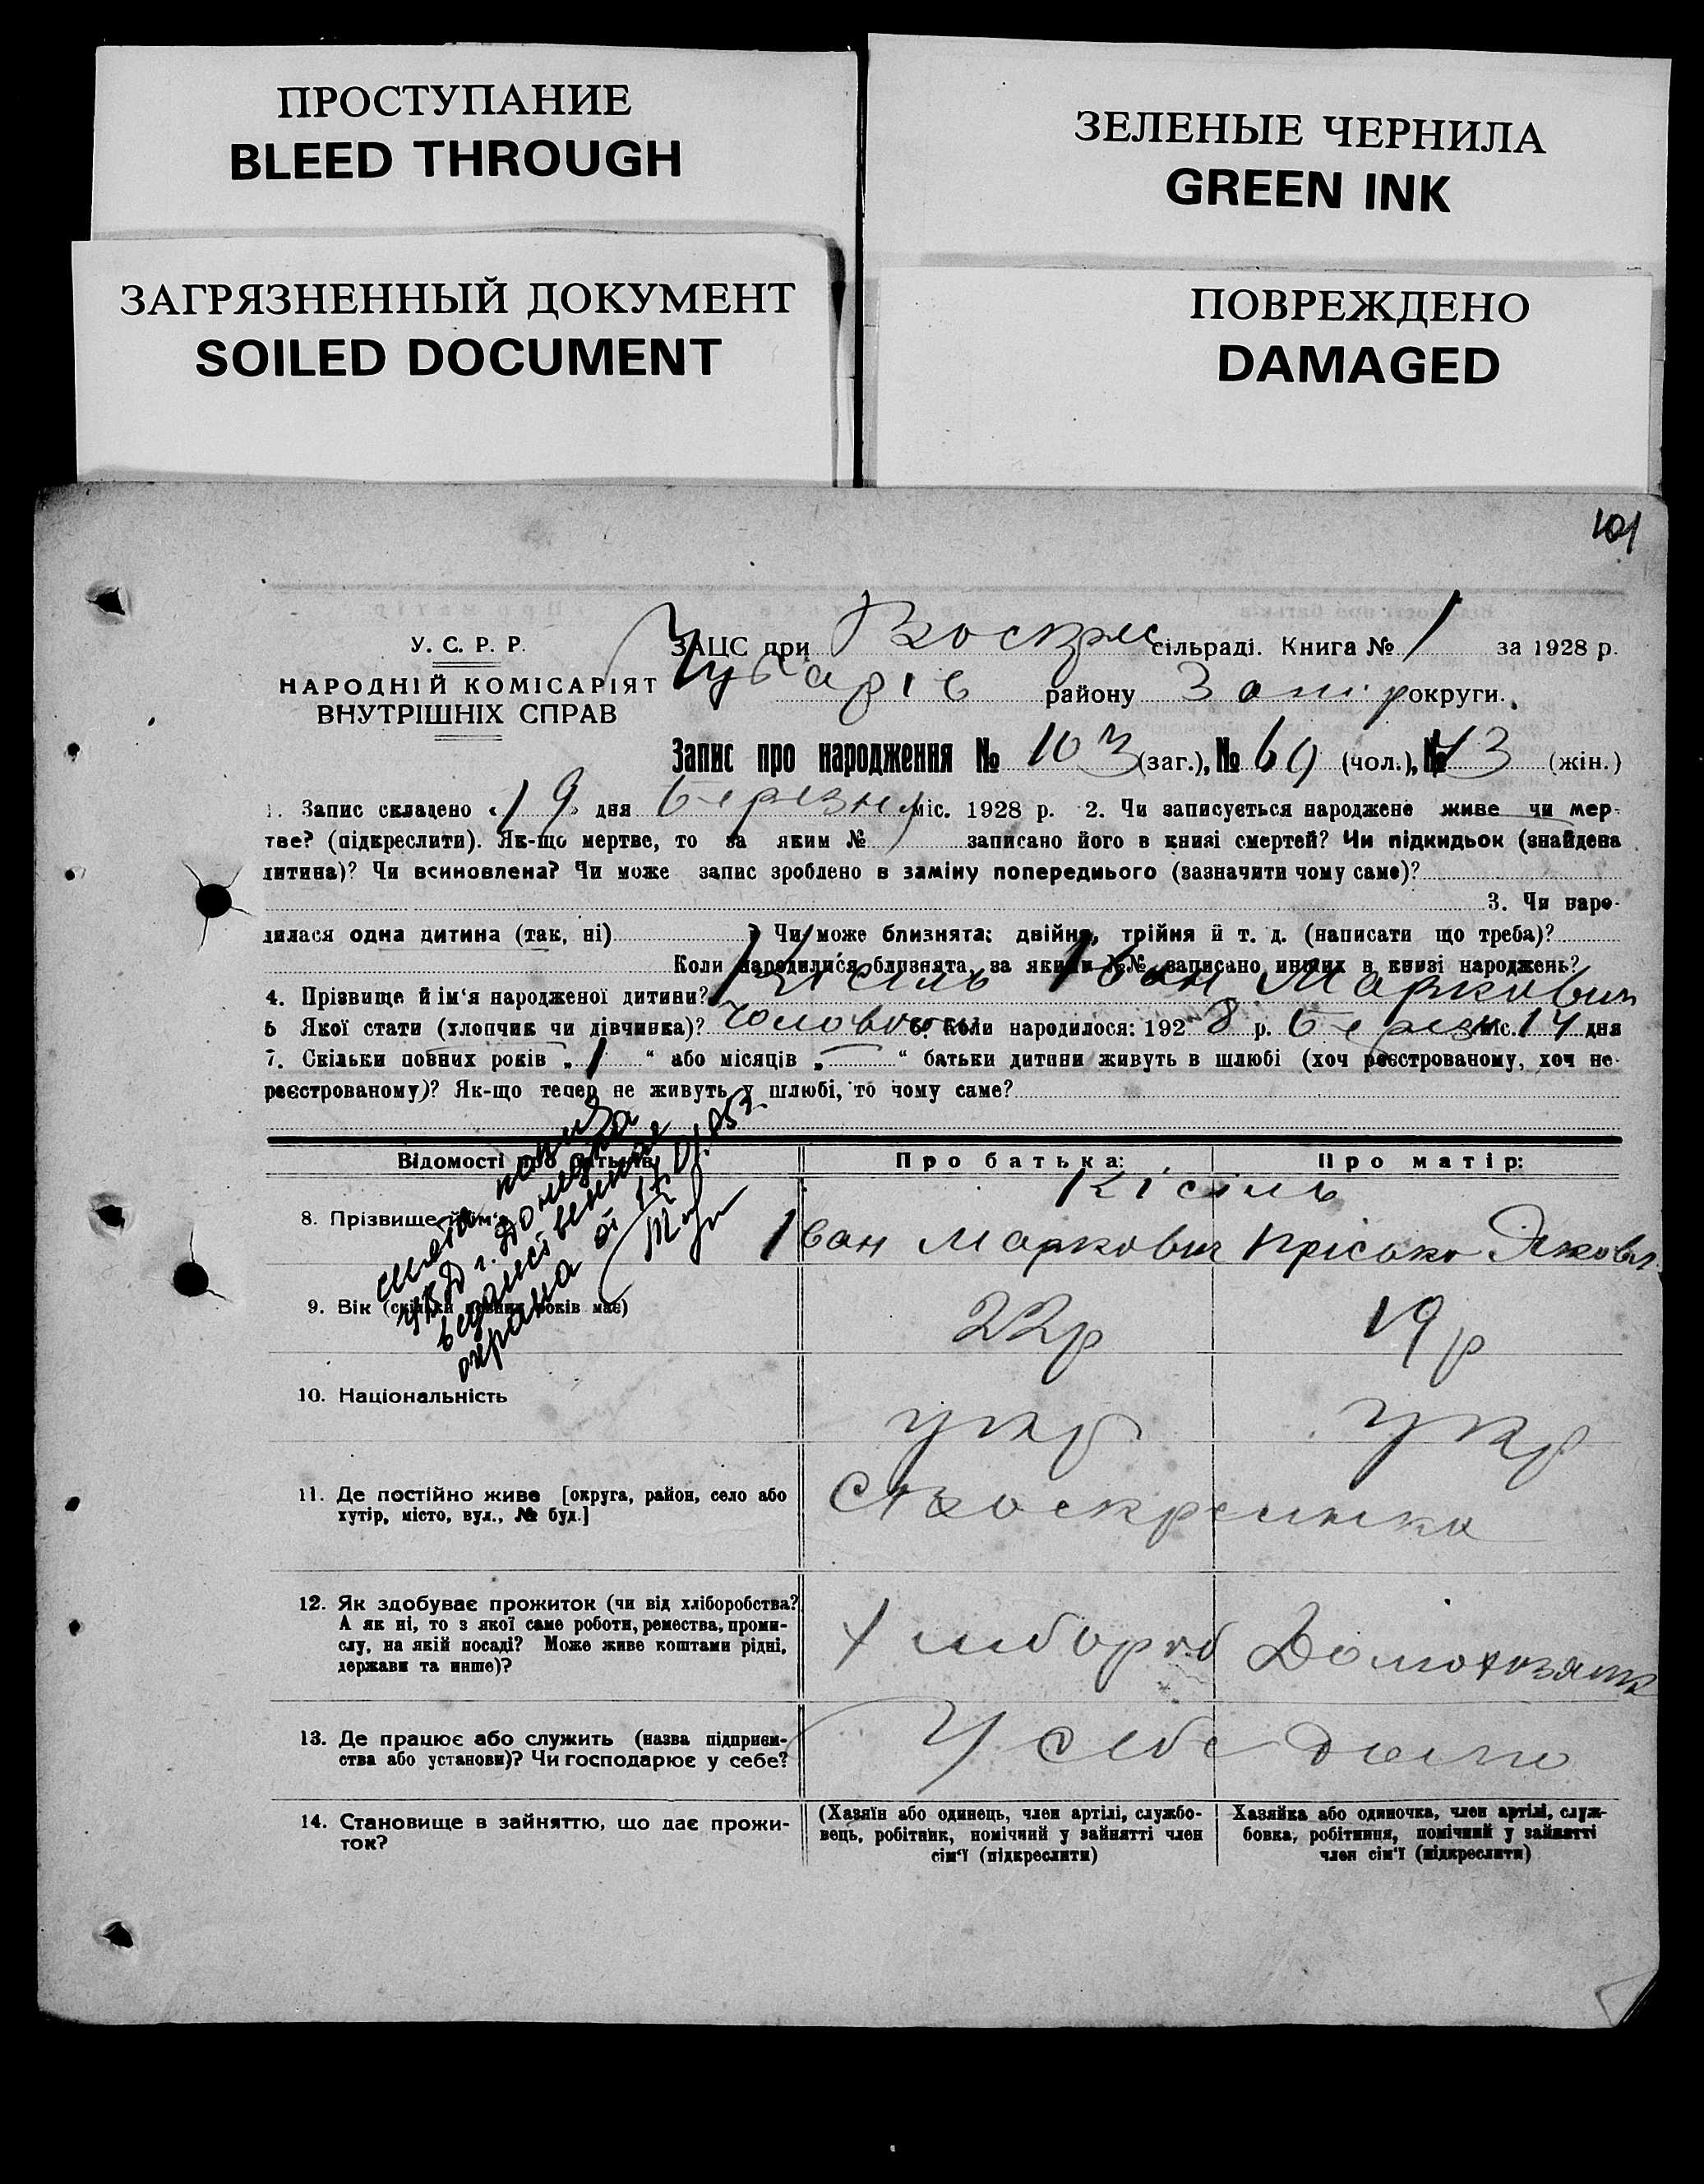 ПРОСТУПАНИЕ
BLEED THROUGH
ЗЕЛЕНЫЕ ЧЕРНИЛА
GREEN INK
ЗАГРЯЗНЕННЫЙ ДОКУМЕНТ
SOILED DOCUMENT
ПОВРЕЖДЕНО
DAMAGED
101
У. С. Р. Р.
НАРОДНІЙ КОМІСАРІЯТ
ВНУТРІШНІХ СПРАВ
ЗАЦС при Воскрес сільраді. Книга № 1 за 1928 р.
Чубарів району Запір округи.
Запис про народження № 103 (заг.), № 60 (чол.), № 43 (жін.)
1. Запис складено «19» дня березня міс. 1928 р. 2. Чи записується народжене живе чи мер-
тве? (підкреслити). Як-що мертве, то за яким № записано його в книзі смертей? Чи підкидьок (знайдена
дитина)? Чи всиновлена? Чи може запис зроблено в заміну попереднього (зазначити чому саме)?
3. Чи наро-
дилася одна дитина (так, ні) ? Чи може близнята: двійня, трійня й т. д. (написати що треба)?
Коли народилися близнята, за якими №№ записано инших в книзі народжень?
4. Прізвище й ім‘я народженої дитини? Кісіль Іван Маркович
5 Якої стати (хлопчик чи дівчинка)? Чоловочи 6. Коли народилося: 1928 р. березн міс. 14 дня
7. Скільки повних років „ 1 “ або місяців „ — “ батьки дитини живуть в шлюбі (хоч реєстрованому, хоч не-
реєстрованому)? Як-що тепер не живуть у шлюбі, то чому саме?
Відомості про батьків
Про батька:
Про матір:
8. Прізвище й ім‘я
Кісіль
Іван Маркович
Прісько Яковл
9. Вік (скільки повних років має)
22р
19р
10. Національність
укр
укр
11. Де постійно живе [округа, район, село або
хутір, місто, вул., № буд.]
12. Як здобуває прожиток (чи від хліборобства?
А як ні, то з якої саме роботи, ремества, проми-
слу, на якій посаді? Може живе коштами рідні,
держави та инше)?
Хлібороб
Домохозяйка
13. Де працює або служить (назва підприєм-
ства або установи)? Чи господарює у себе?
У себе дома
14. Становище в зайняттю, що дає прожи-
ток?
(Хазяїн або одинець, член артілі, службо-
вець, робітник, помічний у зайнятті член
сім‘ї (підкреслити)
Хазяйка або одиночка, член артілі, служ-
бовка, робітниця, помічний у зайнятті
член сім‘ї (підкреслити)